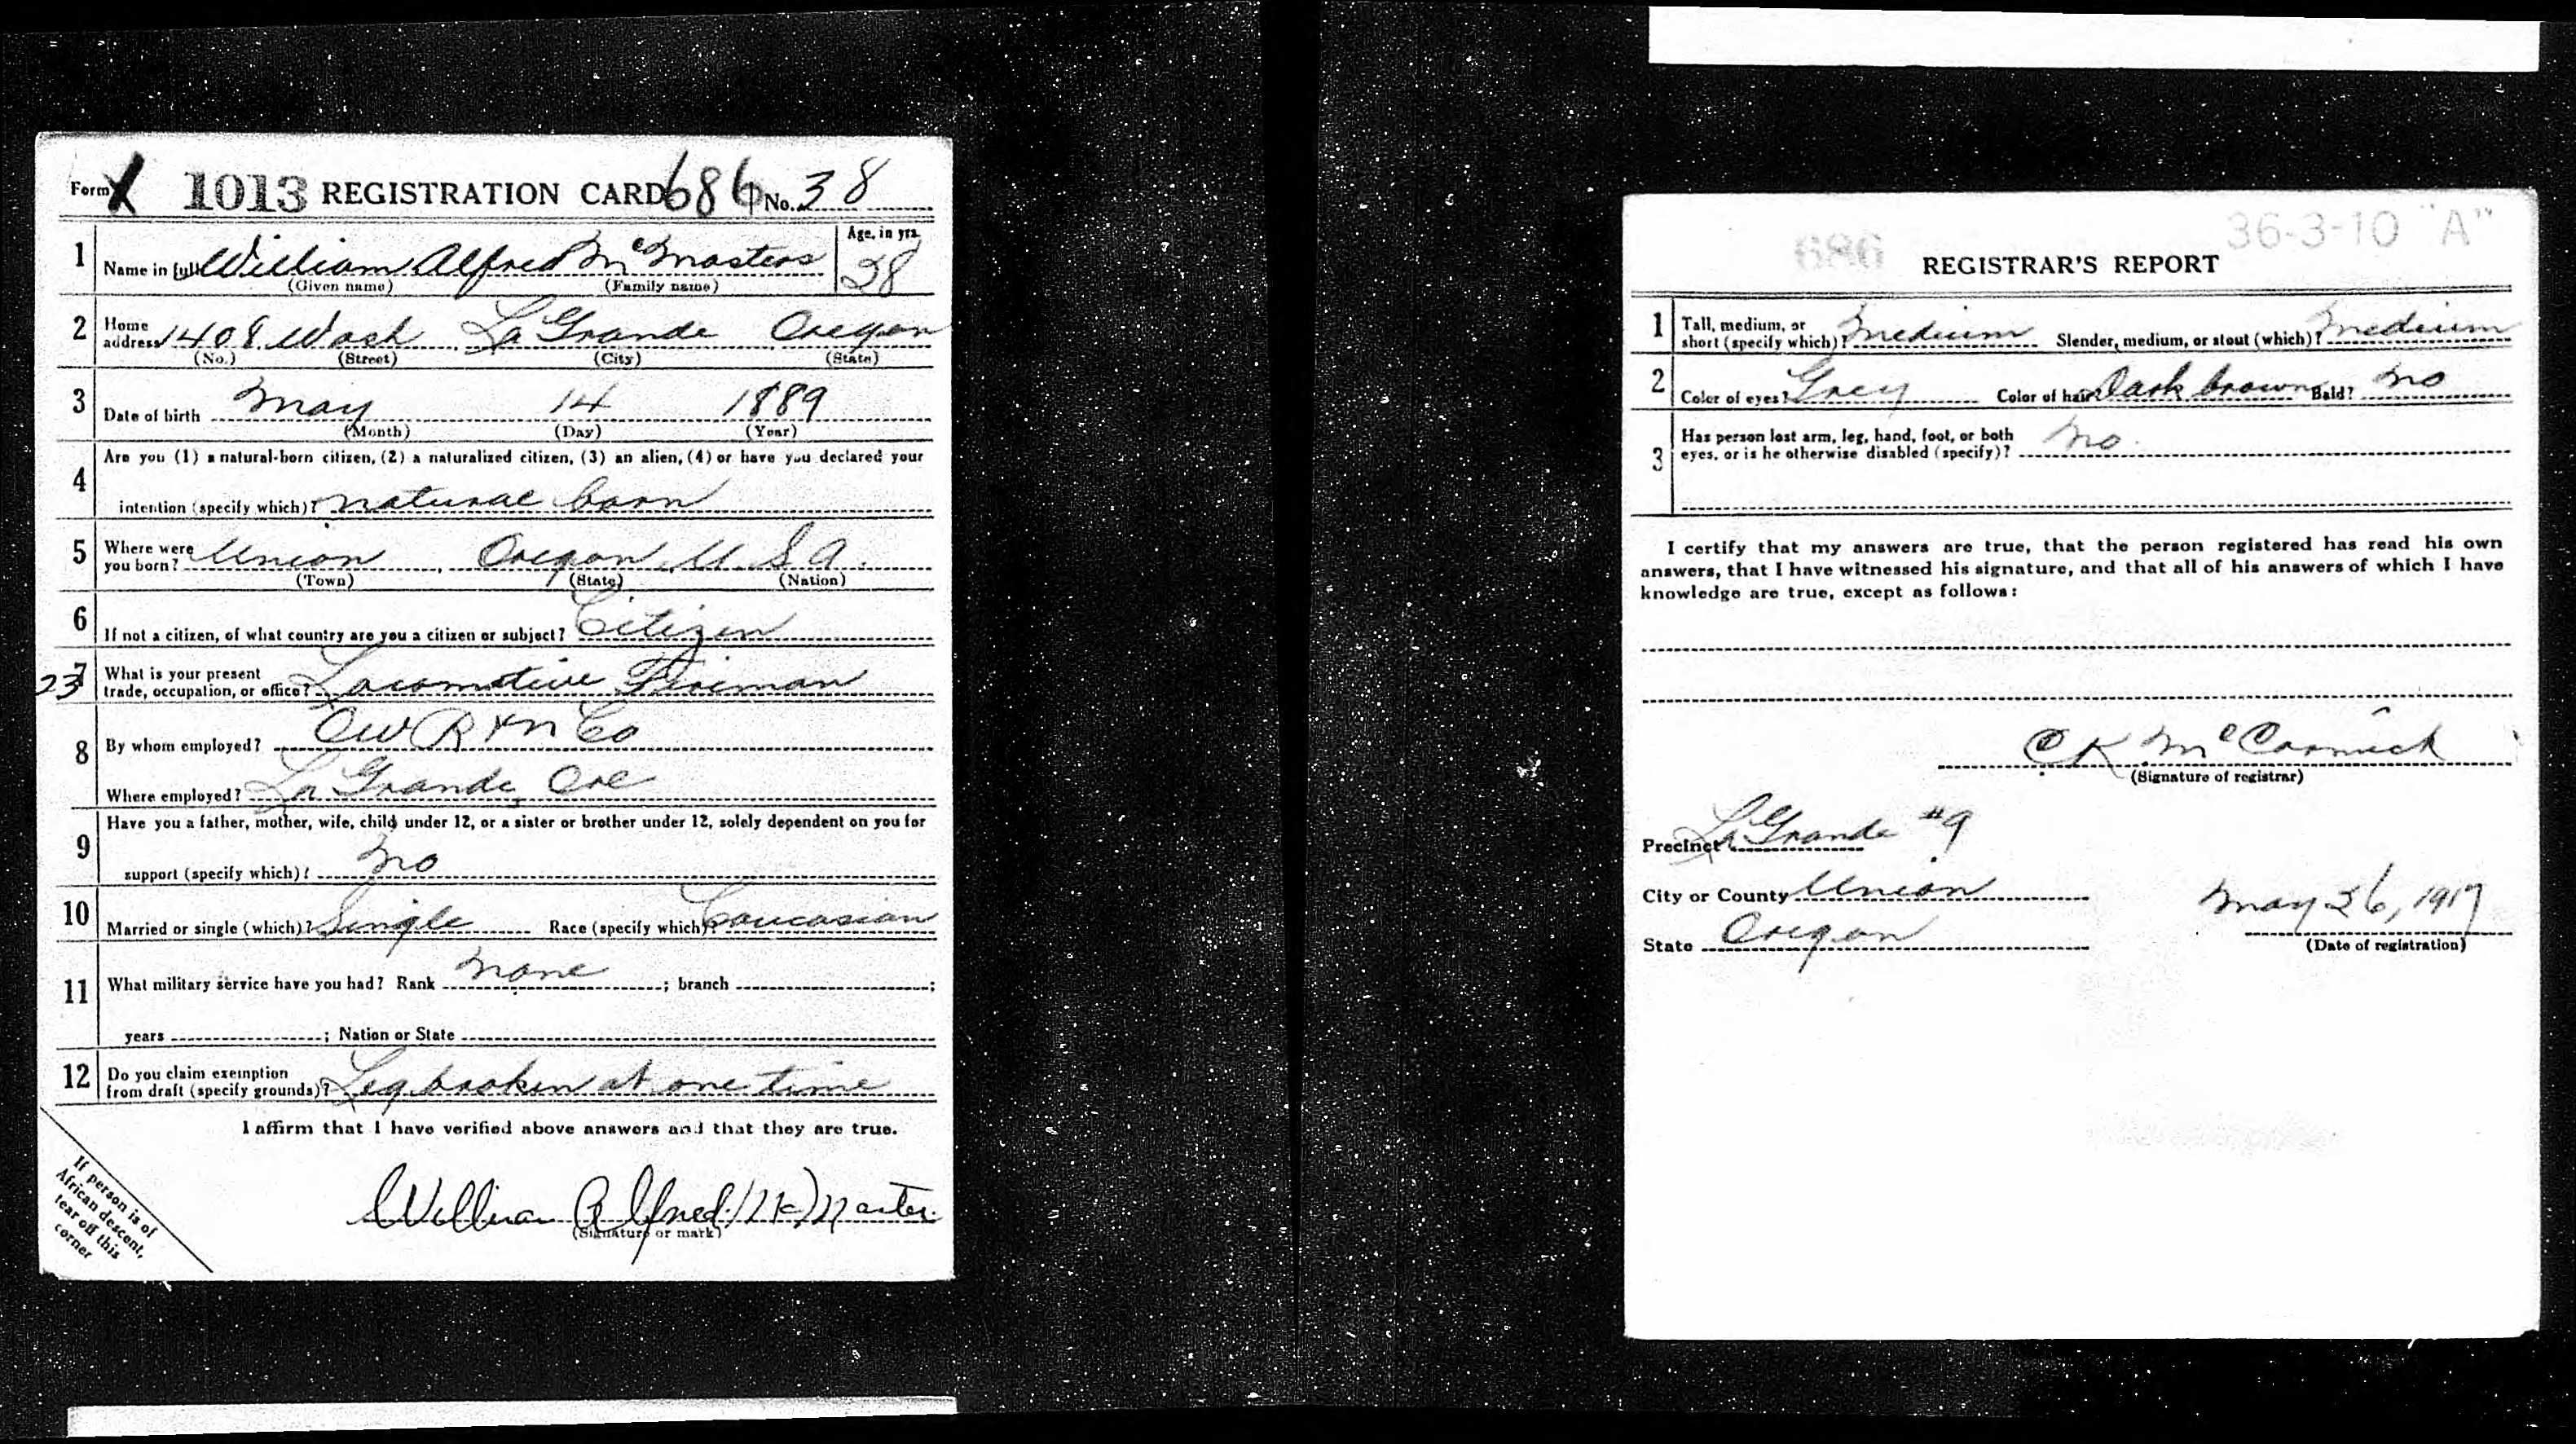 Form 1 1013 REGISTRATION CARD 686 No. 38
1 Name in full William Alfred McMasters Age, in yrs. 28
(Given name) (Family name)
2 Home address 1408 Wash La Grande Oregon
(No.) (Street) (City) (State)
3 Date of birth May 14 1889
(Month) (Day) (Year)
4 Are you (1) a natural-born citizen, (2) a naturalized citizen, (3) an alien, (4) or have you declared your
intention (specify which)? natural born
5 Where were you born? Union Oregon U.S.A.
(Town) (State) (Nation)
6 If not a citizen, of what country are you a citizen or subject? Citizen
23
7 What is your present trade, occupation, or office? Locomotive Fireman
8 By whom employed? OWR & N Co
Where employed? La Grande, Ore
9 Have you a father, mother, wife, child under 12, or a sister or brother under 12, solely dependent on you for
support (specify which)? No
10 Married or single (which)? Single Race (specify which)? Caucasian
11 What military service have you had? Rank None ; branch ;
years ; Nation or State
12 Do you claim exemption from draft (specify grounds)? Leg broken at one time
I affirm that I have verified above answers and that they are true.
William Alfred McMaster
(Signature or mark)
If person is of
African descent,
tear off this
corner
686 36-3-10 "A"
REGISTRAR'S REPORT
1 Tall, medium, or short (specify which)? Medium Slender, medium, or stout (which)? Medium
2 Color of eyes? Grey Color of hair? Dark brown Bald? No
3 Has person lost arm, leg, hand, foot, or both
eyes, or is he otherwise disabled (specify)? No.
I certify that my answers are true, that the person registered has read his own
answers, that I have witnessed his signature, and that all of his answers of which I have
knowledge are true, except as follows:
C K McCormick
(Signature of registrar)
Precinct La Grande #9
City or County Union
State Oregon
May 26, 1917
(Date of registration)